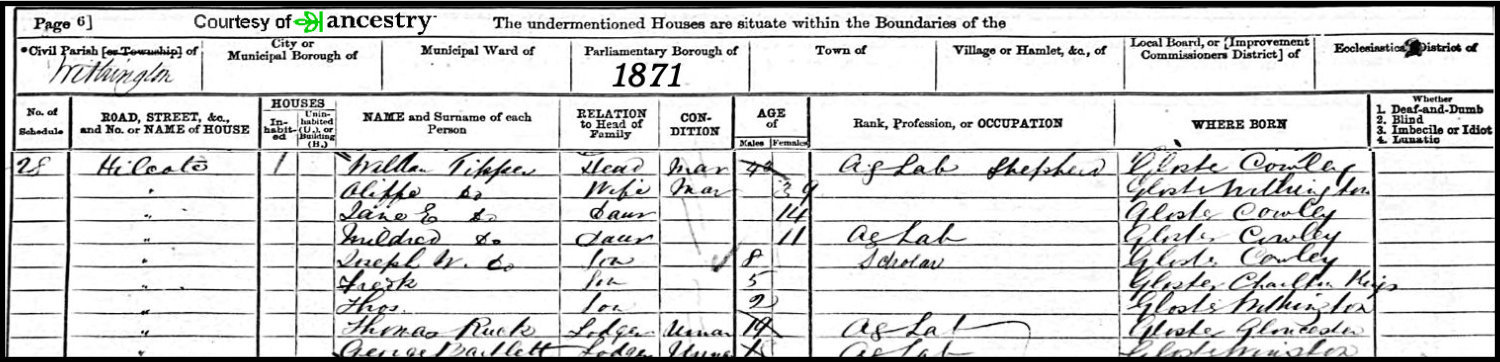 Page 6] Courtesy of ancestry The undermentioned Houses are situate within the Boundaries of the
*Civil Parish [or Township] of
Withington
City or
Municipal Borough of
Municipal Ward of
Parliamentary Borough of
1871
Town of
Village or Hamlet, &c., of
Local Board, or [Improvement
Commissioners District] of
Ecclesiastical District of
No. of
Schedule
ROAD, STREET, &c.,
and No. or NAME of HOUSE
HOUSES
In-
habit-
ed
Unin-
habited
(U.), or
Building
(B.)
NAME and Surname of each
Person
RELATION
to Head of
Family
CON-
DITION
AGE
of
Males Females
Rank, Profession, or OCCUPATION
WHERE BORN
Whether
1. Deaf-and-Dumb
2. Blind
3. Imbecile or Idiot
4. Lunatic
28 Hilcote 1 William Tipper Head Mar Ag Lab Shepherd Gloster Cowley
" Do Wife Mar 39 Gloster Withington
" Jane E Do Daur 14 Gloster Cowley
" Mildred Do Daur 11 Ag Lab Gloster Cowley
" Joseph W. Do Son 8 Scholar Gloster Cowley
" Fredk Son 5 Gloster Charlton Kings
" Thos. Son 2 Gloster Withington
" Thomas Ruck Lodger Unmar 19 Ag Lab Gloster Gloucester
" George Bartlett Lodger Ag Lab Gloster